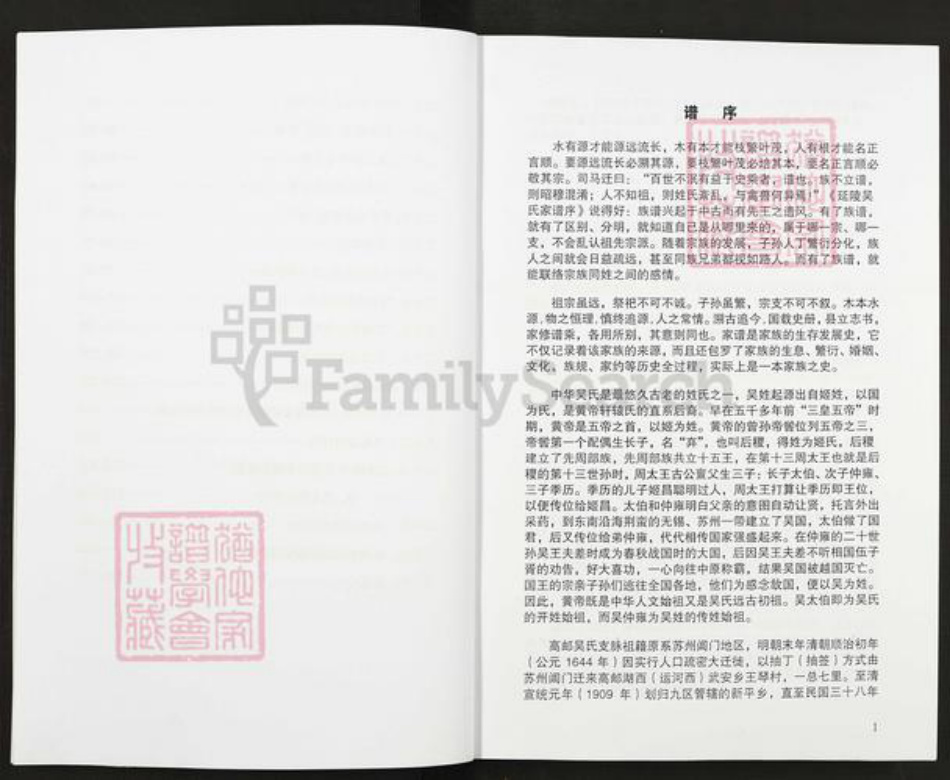 谱 序
水有源才能源远流长，木有本才能枝繁叶茂，人有根才能名正
言顺。要源远流长必溯其源，要枝繁叶茂必培其本，要名正言顺必
敬其宗。司马迁曰：“百世不泯有益于史乘者，谱也。族不立谱，
则昭穆混淆；人不知祖，则姓氏紊乱，与禽兽何异焉！”《延陵吴
氏家谱序》说得好：族谱兴起于中古而有先王之遗风。有了族谱，
就有了区别、分明，就知道自己是从哪里来的，属于哪一宗、哪一
支，不会乱认祖先宗派。随着宗族的发展，子孙人丁繁衍分化，族
人之间就会日益疏远，甚至同族兄弟都视如路人。而有了族谱，就
能联络宗族同姓之间的感情。
祖宗虽远，祭祀不可不诚。子孙虽繁，宗支不可不叙。木本水
源，物之恒理，慎终追源，人之常情。溯古追今，国载史册，县立志书，
家修谱乘，各用所别，其意则同也。家谱是家族的生存发展史，它
不仅记录着该家族的来源，而且还包罗了家族的生息、繁衍、婚姻、
文化、族规、家约等历史全过程，实际上是一本家族之史。
中华吴氏是最悠久古老的姓氏之一，吴姓起源出自姬姓，以国
为氏，是黄帝轩辕氏的直系后裔。早在五千多年前“三皇五帝”时
期，黄帝是五帝之首，以姬为姓。黄帝的曾孙帝喾位列五帝之三，
帝喾第一个配偶生长子，名“弃”，也叫后稷，得姓为姬氏，后稷
建立了先周部族，先周部族共立十五王，在第十三周太王也就是后
稷的第十三世孙时，周太王古公亶父生三子：长子太伯、次子仲雍、
三子季历。季历的儿子姬昌聪明过人，周太王打算让季历即王位，
以便传位给姬昌。太伯和仲雍明白父亲的意图自动让贤，托言外出
采药，到东南沿海荆蛮的无锡、苏州一带建立了吴国，太伯做了国
君，后又传位给弟仲雍，代代相传国家强盛起来。在仲雍的二十世
孙吴王夫差时成为春秋战国时的大国，后因吴王夫差不听相国伍子
胥的劝告，好大喜功，一心向往中原称霸，结果吴国被越国灭亡。
国王的宗亲子孙们逃往全国各地，他们为感念故国，便以吴为姓。
因此，黄帝既是中华人文始祖又是吴氏远古初祖。吴太伯即为吴氏
的开姓始祖，而吴仲雍为吴姓的传姓始祖。
高邮吴氏支脉祖籍原系苏州阊门地区，明朝末年清朝顺治初年
（公元 1644 年）因实行人口疏密大迁徙，以抽丁（抽签）方式由
苏州阊门迁来高邮湖西（运河西）武安乡王琴村，一总七里。至清
宣统元年（1909 年）划归九区管辖的新平乡，直至民国三十八年
1
FamilySearch